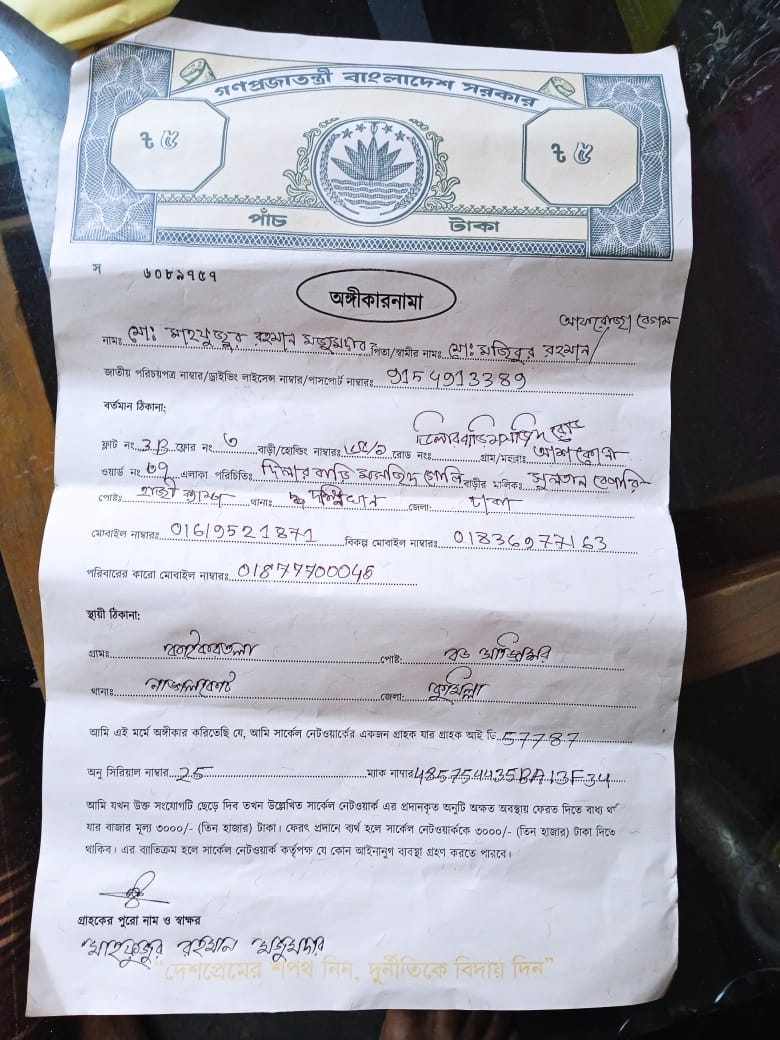 গণপ্রজাতন্ত্রী বাংলাদেশ সরকার
৳ ৫
৳ ৫
পাঁচ টাকা
স ৬০৮৯৭৫৭
অঙ্গীকারনামা
আফরোজা বেগম
নামঃ মোঃ মাহফুজুর রহমান মজুমদার পিতা/স্বামীর নামঃ মোঃ মজিবুর রহমান/
জাতীয় পরিচয়পত্র নাম্বার/ড্রাইভিং লাইসেন্স নাম্বার/পাসপোর্ট নাম্বারঃ 9154913389
বর্তমান ঠিকানা:
ফ্লাট নং 3B ফ্লোর নং ৩ বাড়ী/হোল্ডিং নাম্বারঃ রোড নং গ্রাম/মহল্লাঃ আশকোনা
ওয়ার্ড নং এলাকা পরিচিতিঃ মসজিদ গলি বাড়ীর মালিকঃ সুলতান বেপারি
পোষ্টঃ হাজী ক্যাম্প থানাঃ দক্ষিণখান জেলাঃ ঢাকা
মোবাইল নাম্বারঃ 01619521871 বিকল্প মোবাইল নাম্বারঃ 01836977163
পরিবারের কারো মোবাইল নাম্বারঃ 01877700046
স্থায়ী ঠিকানা:
গ্রামঃ পোষ্ট:
থানাঃ নাঙ্গলকোট জেলা: কুমিল্লা
আমি এই মর্মে অঙ্গীকার করিতেছি যে, আমি সার্কেল নেটওয়ার্কের একজন গ্রাহক যার গ্রাহক আই ডি 57787
অনু সিরিয়াল নাম্বার 25 ম্যাক নাম্বার 485754435BA13F34
আমি যখন উক্ত সংযোগটি ছেড়ে দিব তখন উল্লেখিত সার্কেল নেটওয়ার্ক এর প্রদানকৃত অনুটি অক্ষত অবস্থায় ফেরত দিতে বাধ্য
যার বাজার মূল্য ৩০০০/- (তিন হাজার) টাকা। ফেরৎ প্রদানে ব্যর্থ হলে সার্কেল নেটওয়ার্ককে ৩০০০/- (তিন হাজার) টাকা দিতে
থাকিব। এর ব্যতিক্রম হলে সার্কেল নেটওয়ার্ক কর্তৃপক্ষ যে কোন আইনানুগ ব্যবস্থা গ্রহণ করতে পারবে।
গ্রাহকের পুরো নাম ও স্বাক্ষর
মাহফুজুর রহমান মজুমদার
"দেশপ্রেমের শপথ নিন, দুর্নীতিকে বিদায় দিন"